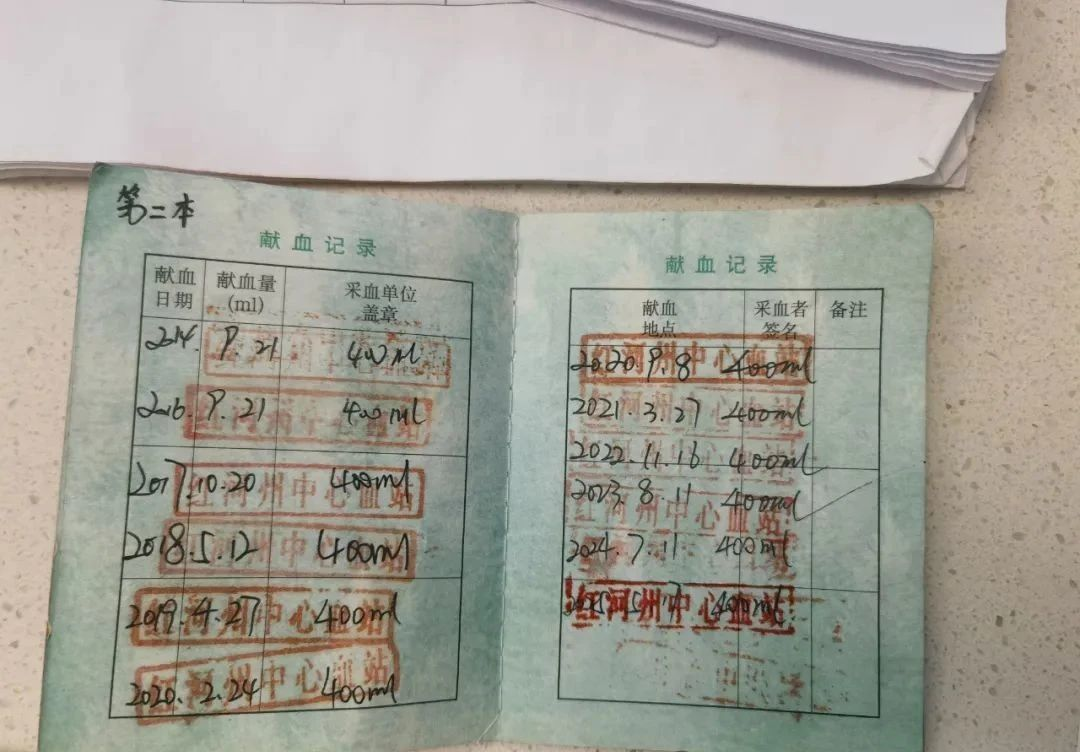 第二本
献血记录
献血日期 献血量(ml) 采血单位盖章
2014. 9. 21 400ml
2016. 9. 21 400ml
红河州中心血站
2017.10.20 400ml
红河州中心血站
2018.5.12 400ml
红河州中心血站
2019.4.27 400ml
红河州中心血站
2020.2.24 400ml
红河州中心血站
献血记录
献血地点 采血者签名 备注
2020.9.8 400ml
红河州中心血站
2021.3.27 400ml
红河州中心血站
2022.11.16 400ml
2023.8.11 400ml
红河州中心血站
2024.7.11 400ml
400ml
红河州中心血站